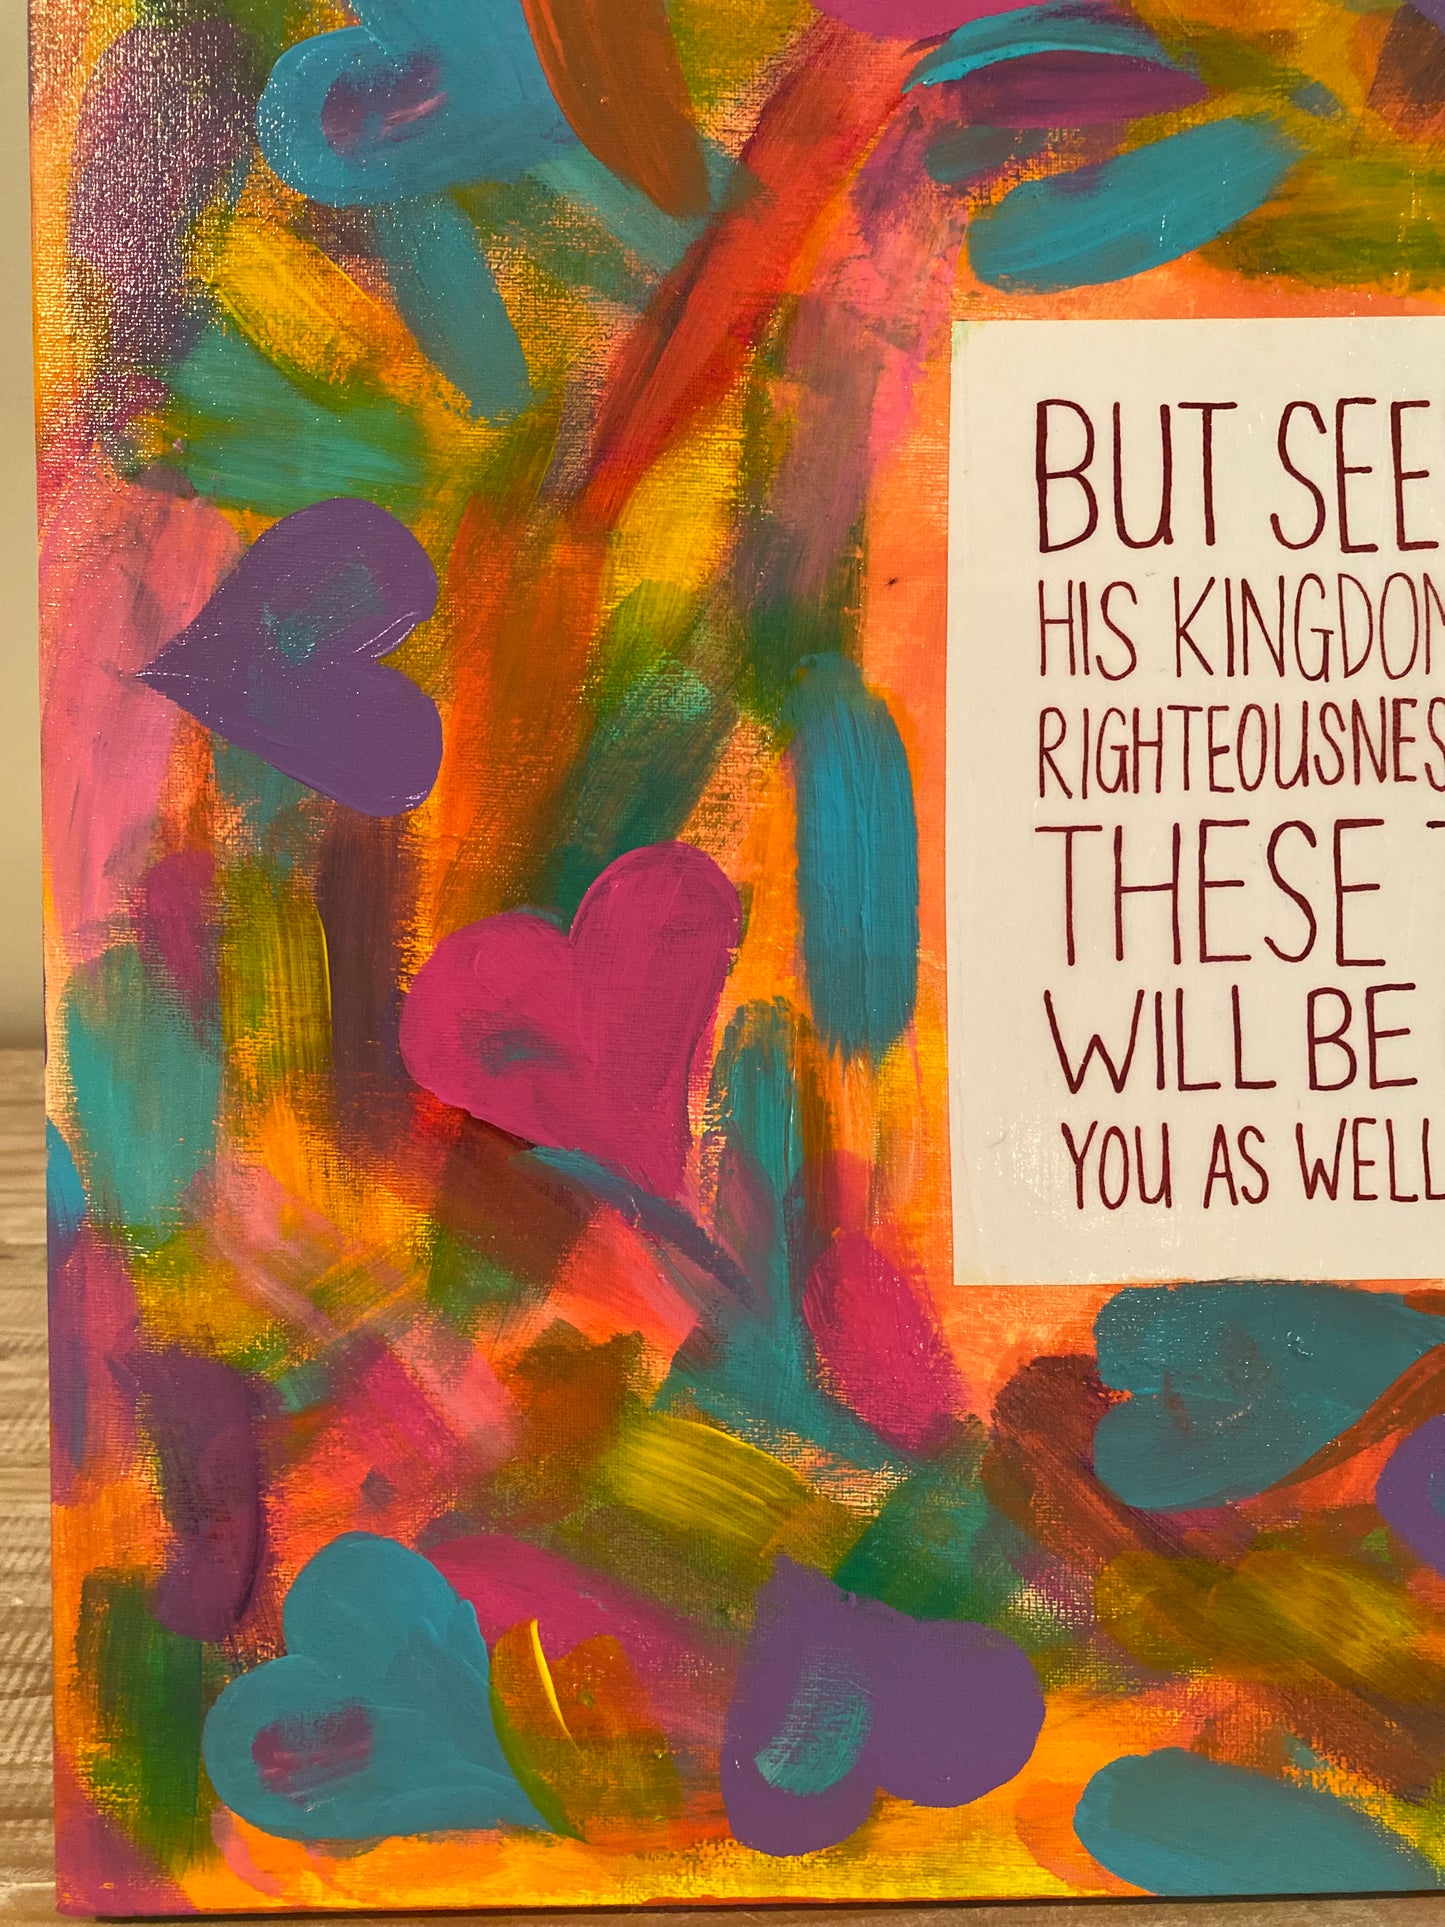 BUT SEE
HIS KINGDOM
RIGHTEOUSNES
THESE T
WILL BE
YOU AS WELL